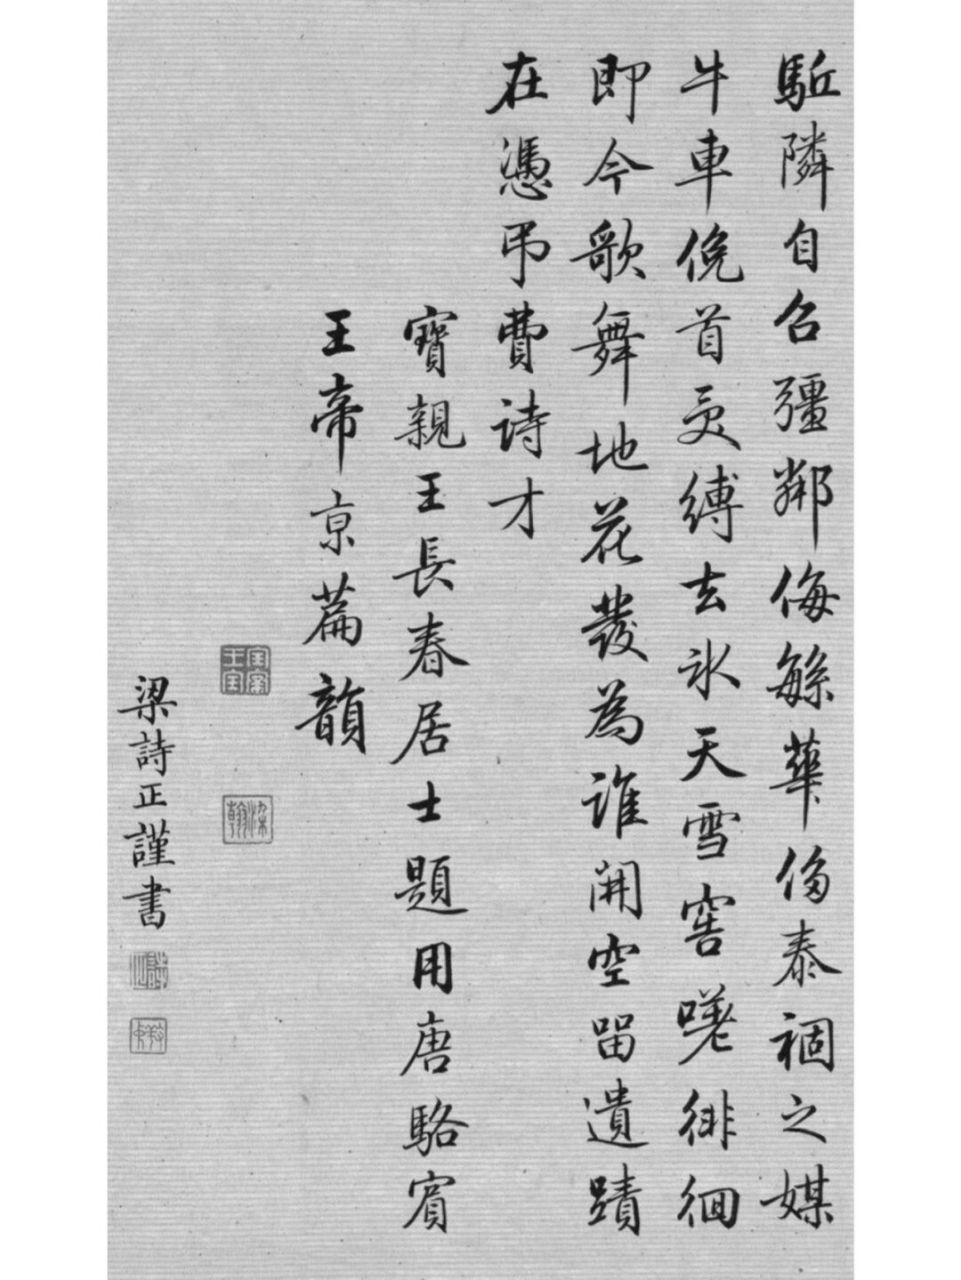 駈隣自召彊鄰侮緐華侈泰禍之媒
牛車俛首受縛去氷天雪窖嗟徘徊
即今歌舞地花發為誰開空留遺蹟
在憑弔費詩才
寶親王長春居士題用唐駱賓
王帝京篇韻
寶親王寶
染翰
梁詩正謹書